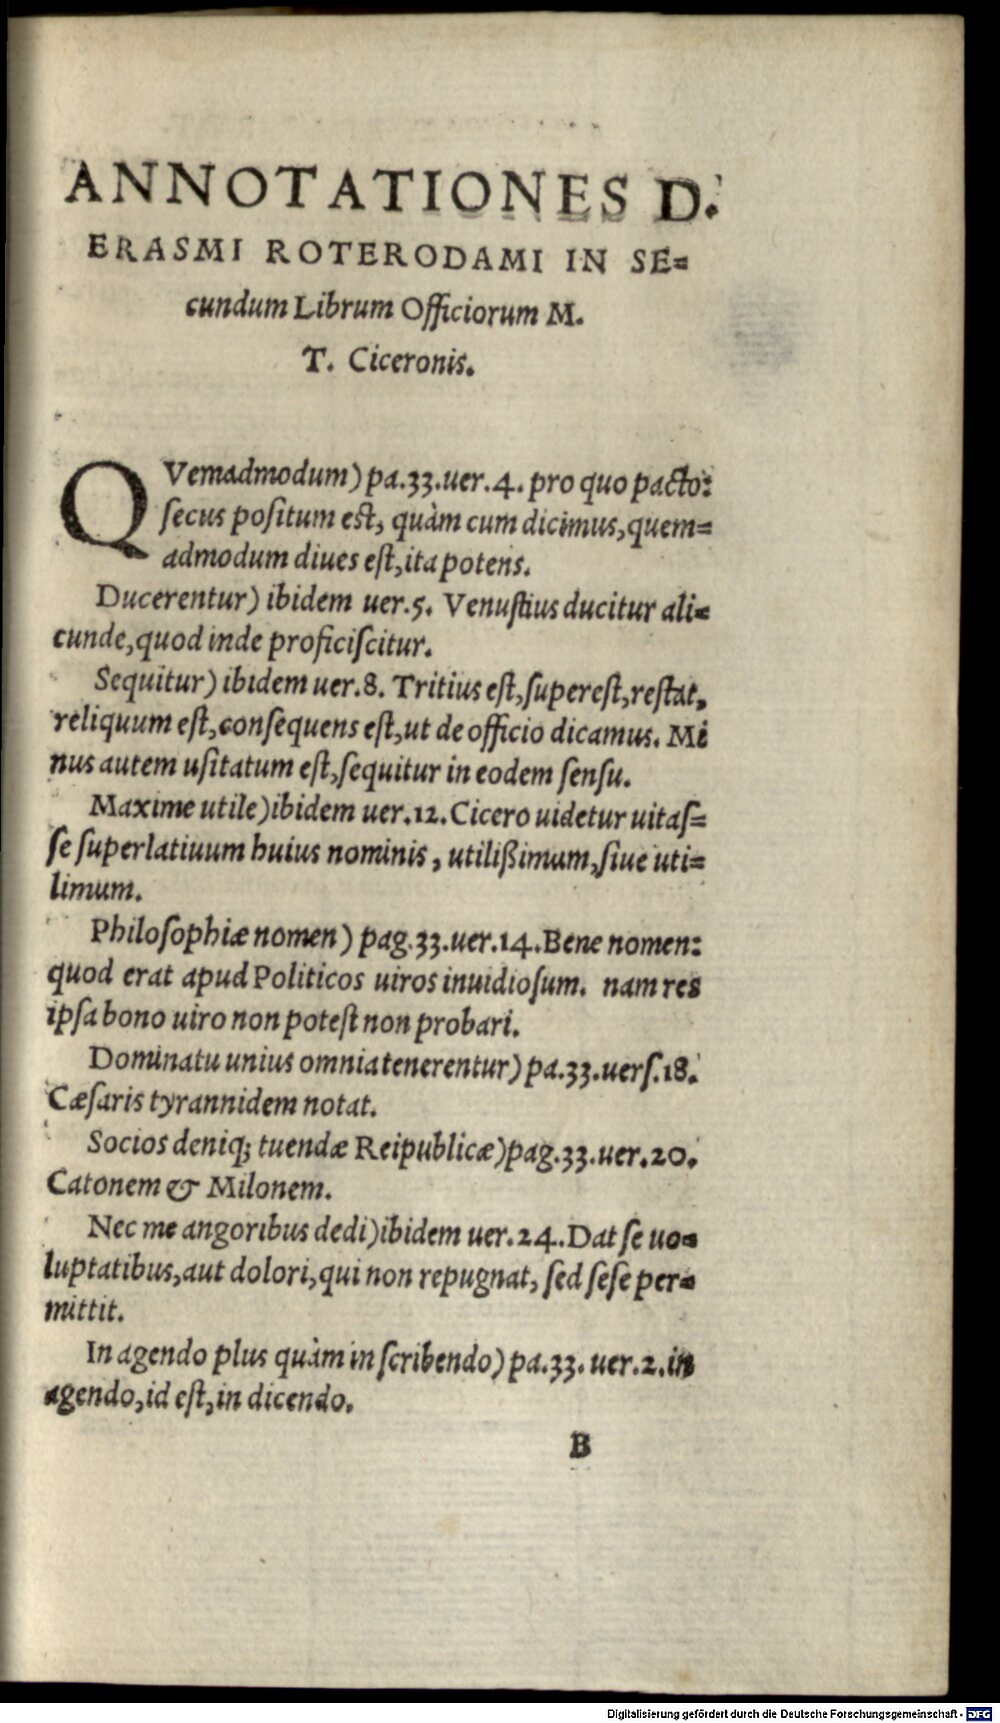 ANNOTATIONES D.
ERASMI ROTERODAMI IN SE=
cundum Librum Officiorum M.
T. Ciceronis.
QVemadmodum) pa.33.uer.4. pro quo pacto:
ſecus poſitum eſt, quàm cum dicimus, quem=
admodum diues eſt, ita potens.
Ducerentur) ibidem uer.5. Venuſtius ducitur ali=
cunde, quod inde proficiſcitur.
Sequitur) ibidem uer.8. Tritius eſt, ſupereſt, reſtat,
reliquum eſt, conſequens eſt, ut de officio dicamus. Mi
nus autem uſitatum eſt, ſequitur in eodem ſenſu.
Maxime utile) ibidem uer.12. Cicero uidetur uitaſ=
ſe ſuperlatiuum huius nominis, utilißimum, ſiue uti=
limum.
Philoſophiæ nomen) pag.33.uer.14. Bene nomen:
quod erat apud Politicos uiros inuidioſum. nam res
ipſa bono uiro non poteſt non probari.
Dominatu unius omnia tenerentur) pa.33.uerſ.18.
Cæſaris tyrannidem notat.
Socios deniq; tuendæ Reipublicæ) pag.33.uer.20.
Catonem & Milonem.
Nec me angoribus dedi) ibidem uer.24. Dat ſe uo=
luptatibus, aut dolori, qui non repugnat, ſed ſeſe per=
mittit.
In agendo plus quàm in ſcribendo) pa.33. uer.2. in
agendo, id eſt, in dicendo.
B
Digitalisierung gefördert durch die Deutsche Forschungsgemeinschaft - DFG